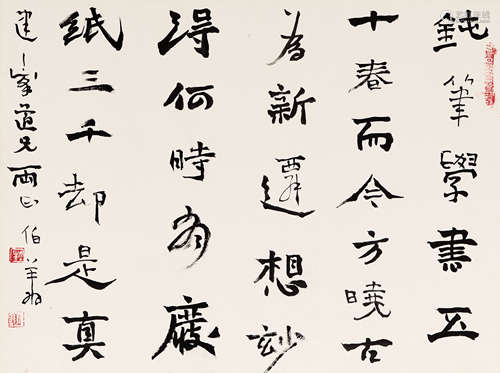 鈍筆學書五
十春而今方曉古
為新遷想妙
得何時為廢
紙三千却是真
建峯道兄兩正 伯羊